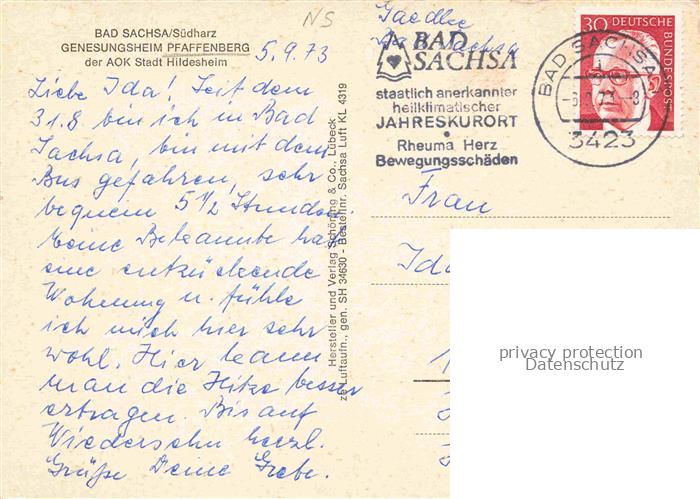 NS
BAD SACHSA/Südharz
GENESUNGSHEIM PFAFFENBERG
der AOK Stadt Hildesheim
5.9.73
Liebe Ida! Seit dem
31.8. bin ich in Bad
Sachsa, bin mit dem
Bus gefahren, sehr
bequem 5 1/2 Stunden.
Meine Bekannte hat
eine entzückende
Wohnung u. fühle
ich mich hier sehr
wohl. Hier kann
man die Hitze besser
ertragen. Bis auf
Wiedersehn herzl.
Grüße Deine Grete.
Hersteller und Verlag Schöning & Co., Lübeck
Luftaufn., gen. SH 34630 - Bestellnr. Sachsa Luft KL 4319
Gaedke
Bad Sachsa
BAD
SACHSA
staatlich anerkannter
heilklimatischer
JAHRESKURORT
Rheuma Herz
Bewegungsschäden
30 DEUTSCHE
BUNDESPOST
BAD SACHSA
3423
Frau
Ida
privacy protection
Datenschutz